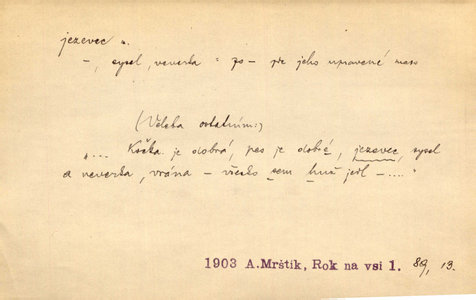 jezevec
–, sysel, veverka = po– pře jeho upravené maso
(Věleba ostatním:)
„... Kočka je dobrá, pes je dobré, jezevec, sysel
a veverka, vrána – všecko sem huž jedl –...."
1903 A.Mrštík, Rok na vsi 1. 89, 13.